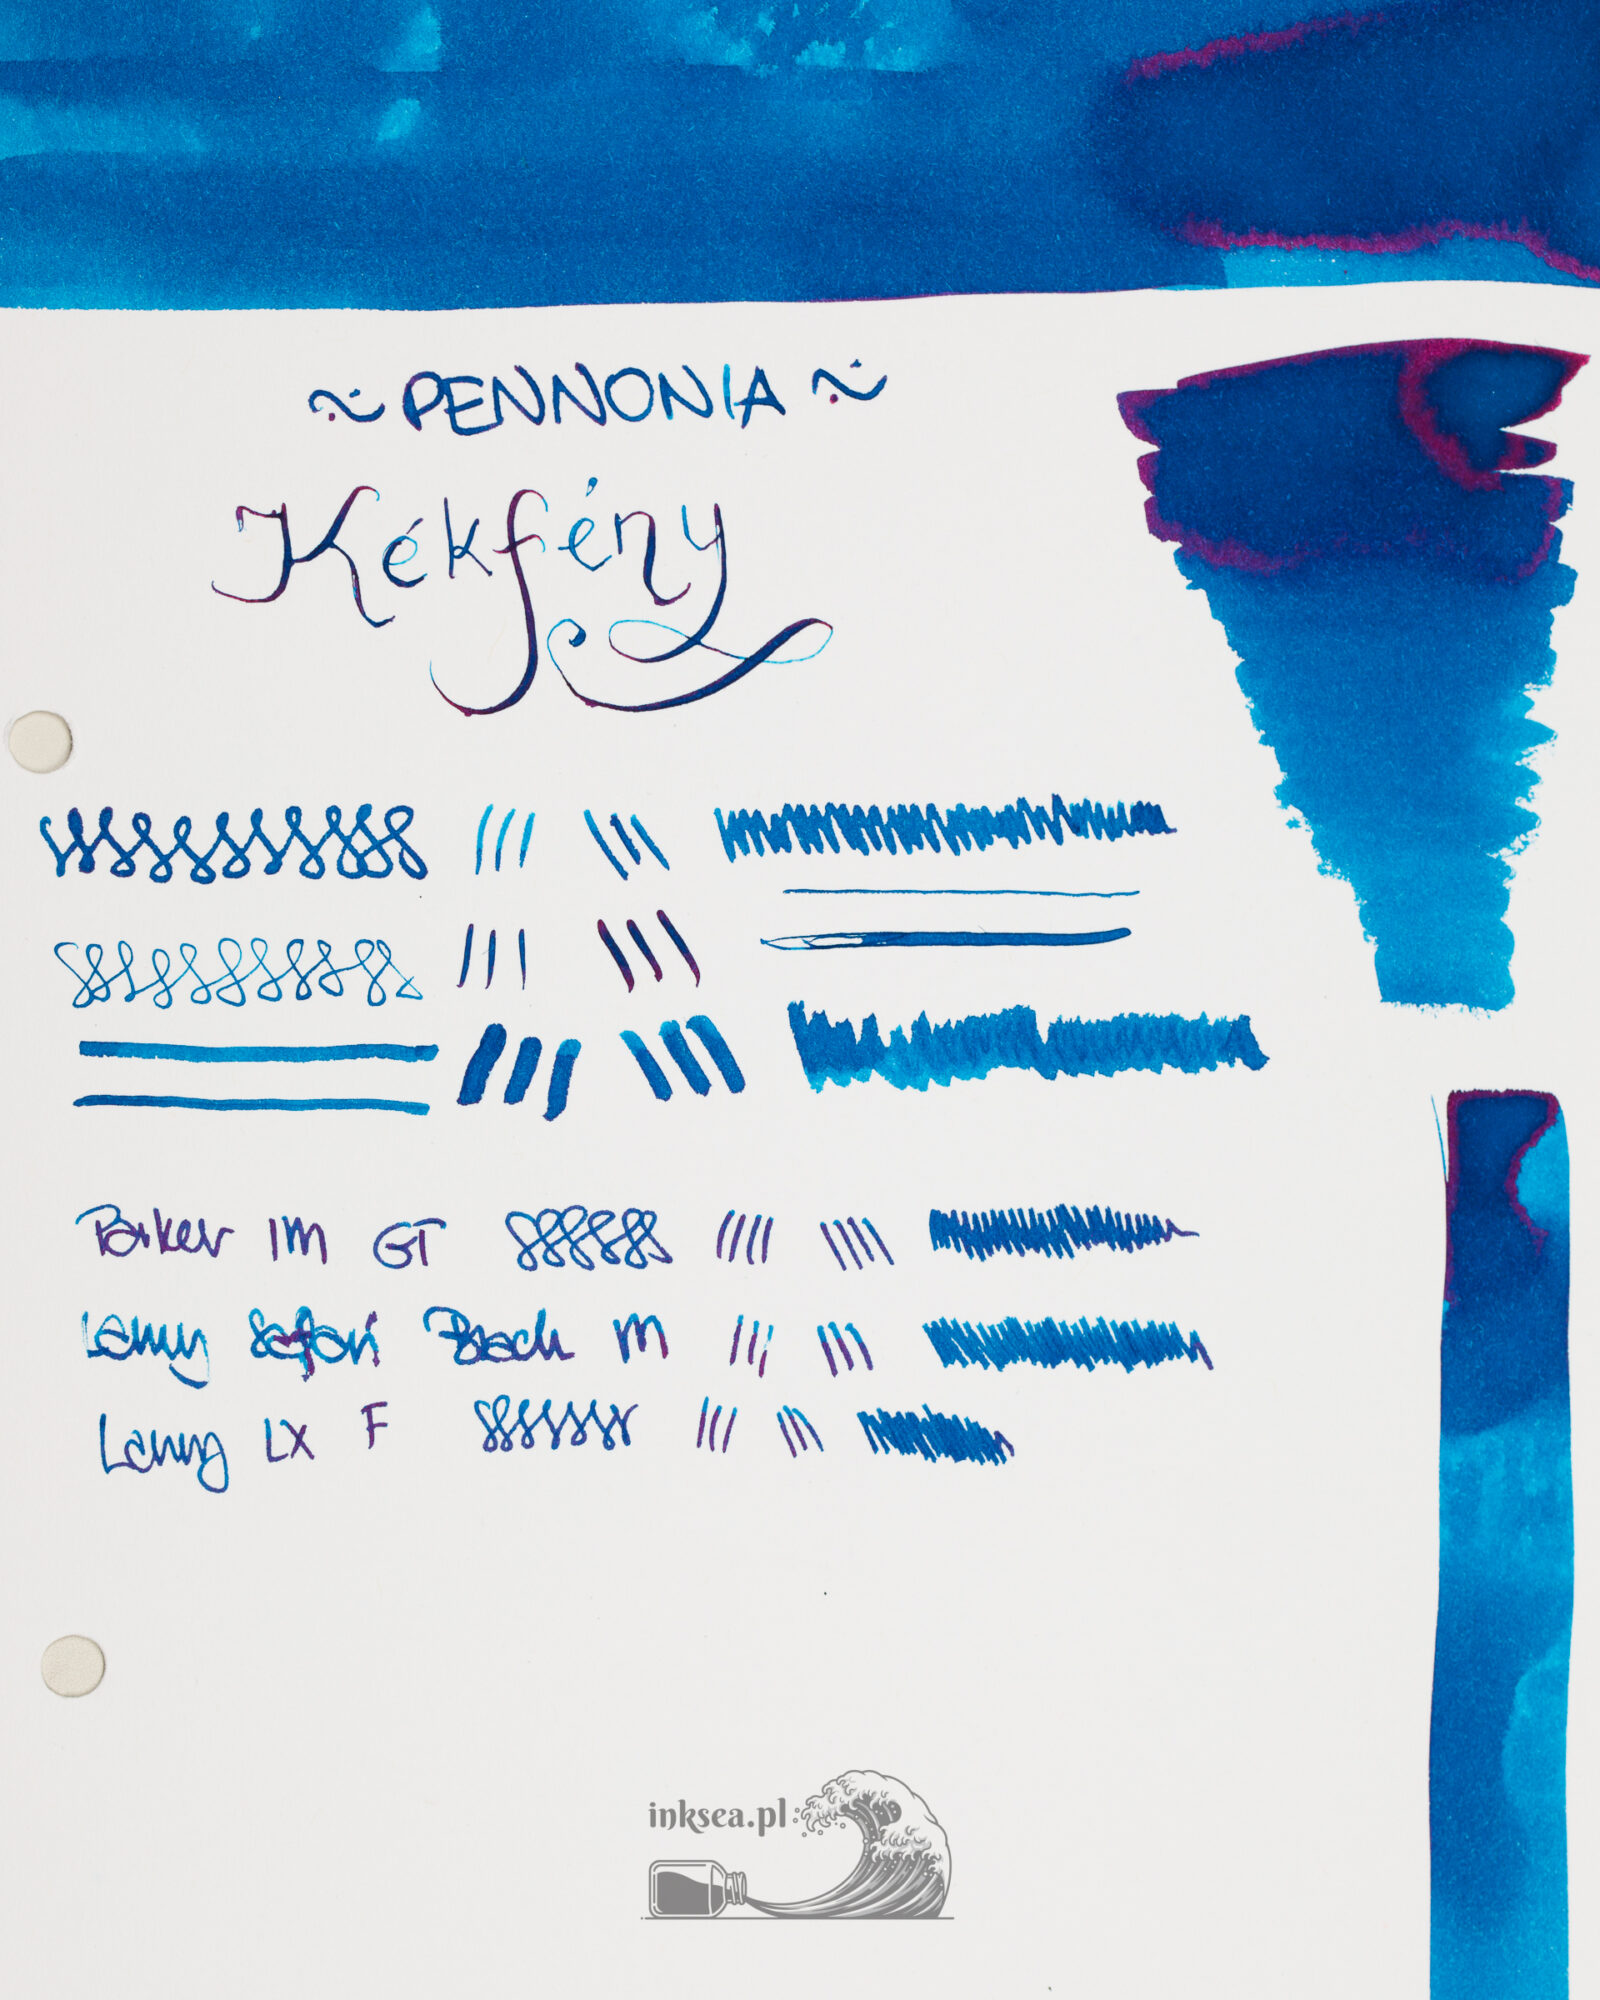 ~ PENNONIA ~
Kékfény
Parker IM GT
Lamy Safari Black M
Lamy LX F
inksea.pl